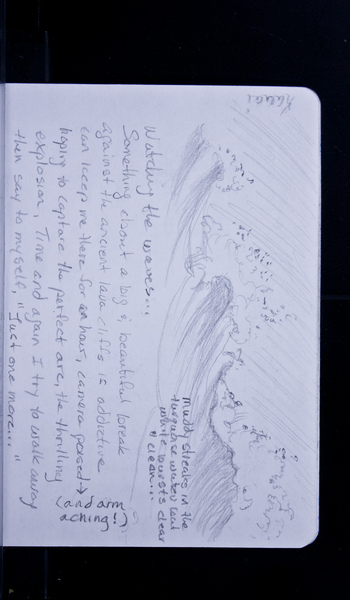 Kauai
muddy streaks in the
turquoise water and
white bursts clear
"clean...
Watching the waves...
Something about a big & beautiful break
against the ancient lava cliffs is addictive
can keep me there for an hour, camera poised →
(and arm
aching!)
hoping to capture the perfect arc, the thrilling
explosion. Time and again I try to walk away
then say to myself, "Just one more..."